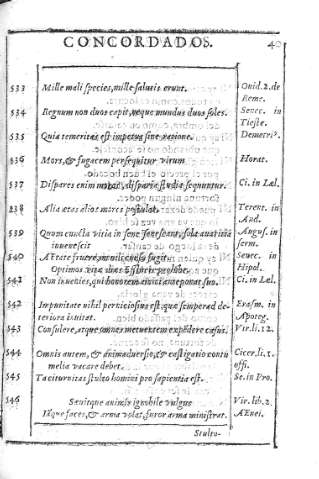 CONCORDADOS. 40
533 Mille mali species, mille salutis erunt. Ouid. 2. de Reme.
534 Regnum non duos capit, neque mundus duos soles. Senec. in Tieste.
535 Quia temeritas est impetus sine ratione. Demetri⁹.
536 Mors, & fugacem persequitur virum Horat.
537 Dispares enim mores, disparia studia sequuntur. Ci. in Læl.
238 Alia ætas alios mores postulat. Terent. in And.
539 Quom cuncta vitia in sene senescant, sola auaritia Augus. in
iuuenescit serm.
540 AEtate fruere, mobili cursu fugit. Senec. in
Optimos vitæ dies Hipol.
541 Non inuenies, qui honorem amici anteponat suo. Ci. in Læl.
542 Impunitate nihil perniciosius est, quæ semper ad de- Erasm. in
teriora inuitat. Apoteg.
543 Consulere, atque omnes metuentem expedere casus. Vir. li. 12.
544 Omnis autem, & animaduersio, & castigatio contu Cicer. li. 1.
melia vacare debet. offi.
545 Taciturnitas stulto homini pro sapientia est. Se. in Pro.
546 Sæuitque animis ignobile vulgus Vir. lib. 2.
Iãque faces, & arma volat, furor arma ministrat. AEnei.
Stulto-